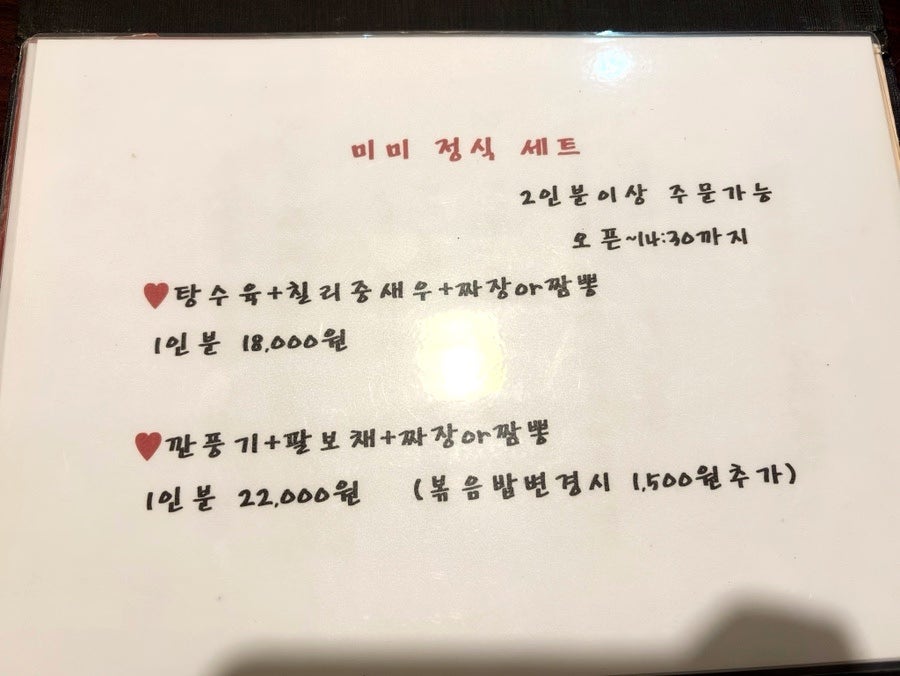 미미 정식 세트
2인분이상 주문가능
오픈~14:30까지
♥탕수육+칠리중새우+짜장or짬뽕
1인분 18,000원
♥깐풍기+팔보채+짜장or짬뽕
1인분 22,000원 (볶음밥변경시 1,500원추가)